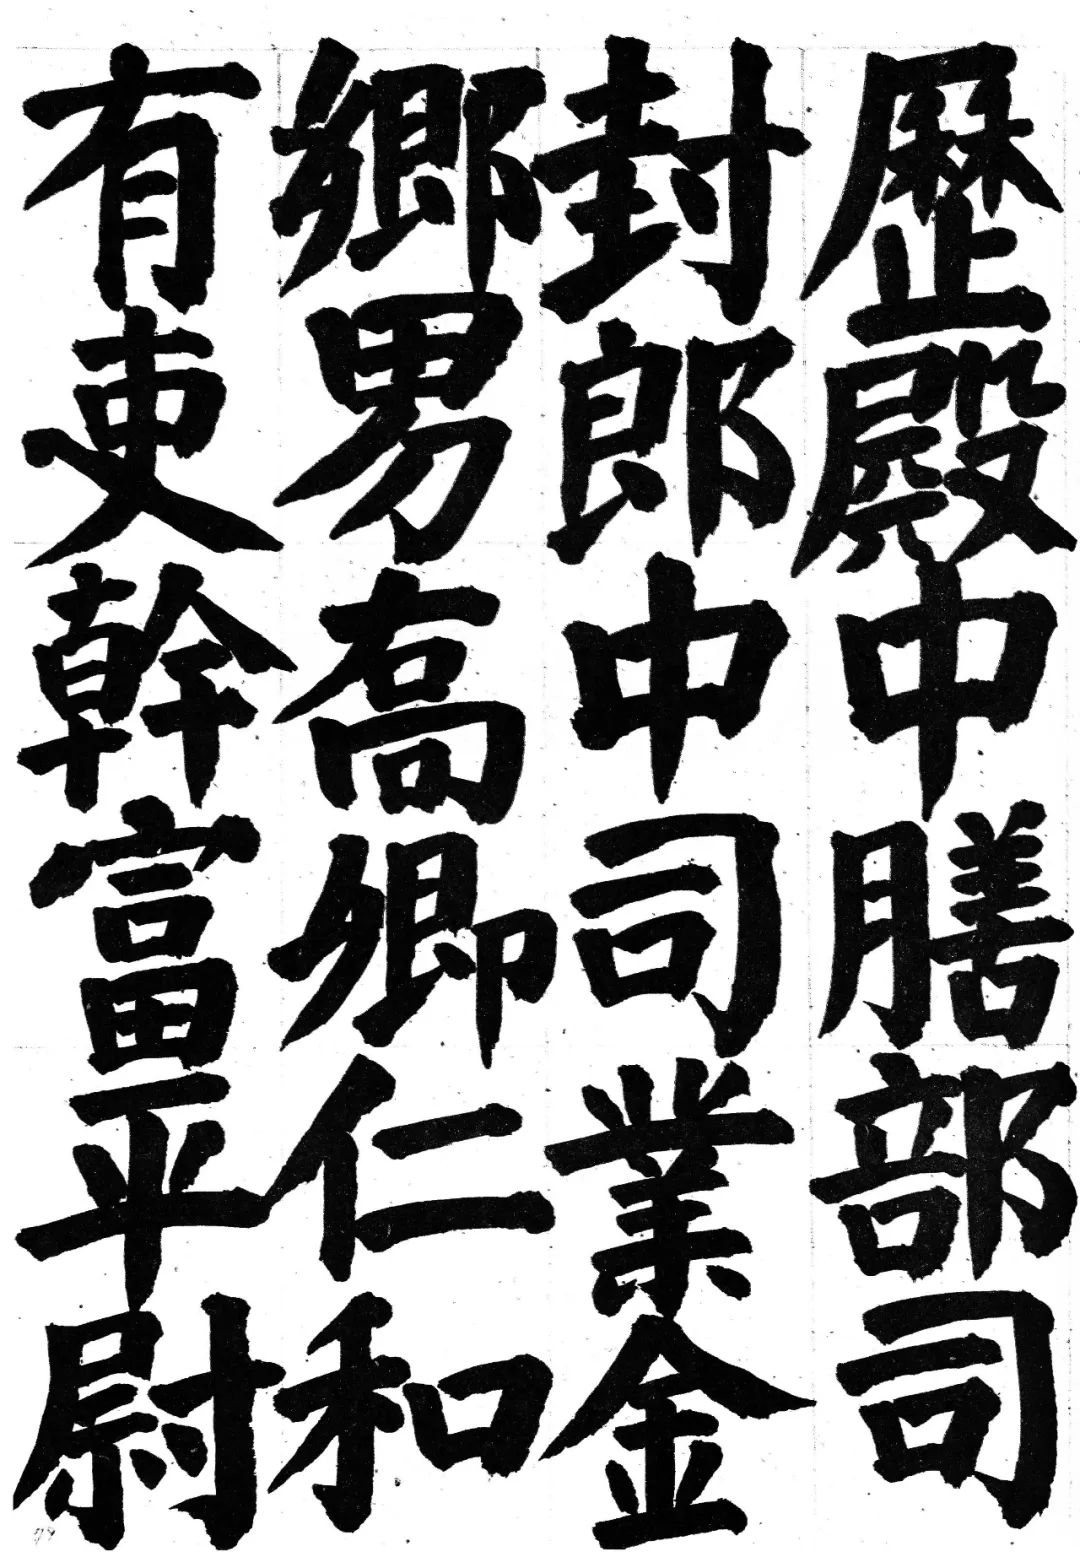 歷殿中膳部司
封郎中司業金
鄉男喬卿仁和
有吏幹富平尉